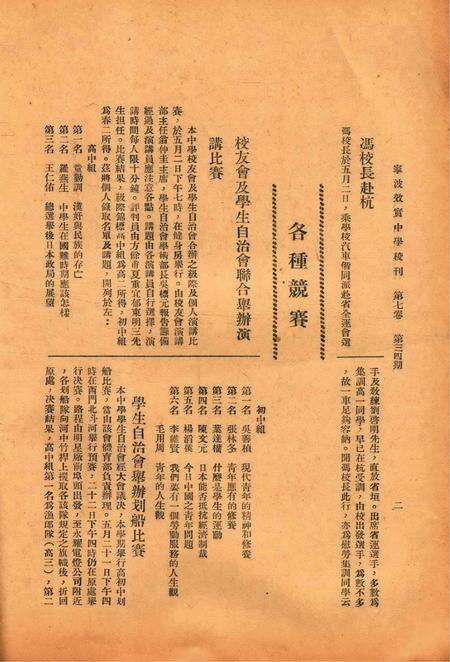 寧波效實中學校刊 第七卷 第三四期
二
馮校長赴杭
馮校長於五月二日，乘學校汽車偕同派赴省全運會選
手及教練劉啓明先生，直放省垣。出席省運選手，多數爲
集訓高一同學，早已在杭受訓，由校出發選手，爲數不多
，故一車足夠容納。聞馮校長此行，亦爲慰勞集訓同學云
各種競賽
校友會及學生自治會聯合舉辦演
講比賽
本中學校友會及學生自治會合辦之級際及個人演講比
賽，於五月二日下午七時，在健身房舉行。由校友會演講
部主任翁仲圭主席，學生自治會學術部長吳標元報告籌備
經過及演講員應注意各點。講題由各演講員自行選擇，演
講時間每人限十分鐘。評判員由方餘甫夏重宜鄔東明三先
生担任。比賽結果，級際錦標高中組爲高二所得，初中組
爲春二所得。茲將個人錄取名單及講題，開列於左：
高中組
第一名 童勤訓 漢奸與民族的存亡
第二名 羅澹生 中學生在國難時期應該怎樣
第三名 王仁佑 總選舉後日本政局的展望
初中組
第一名 吳善楨 現代青年的精神和修養
第二名 張林多 青年應有的修養
第三名 葉達模 什麼是學生的運動
第四名 陳文元 日本能否抵抗經濟制裁
第五名 楊滔漢 今日中國之青年問題
第六名 李維賢 我們要有一個勞動服務的人生觀
毛用周 青年的人生觀
學生自治會舉辦划船比賽
本中學學生自治會經大會議決，本學期舉行高初中划
船比賽，當由該會體育部負責辦理。五月二十一日下午四
時在西門北斗河舉行預賽，二十二日下午四時仍在原處舉
行决賽。路程由明星廠前埠頭出發，至永耀電燈公司附近
，各划船隊向河中竹桿上攫取各該隊規定之旗幟後，折回
原處，决賽結果，高中組第一名爲漁郎隊（高三），第二